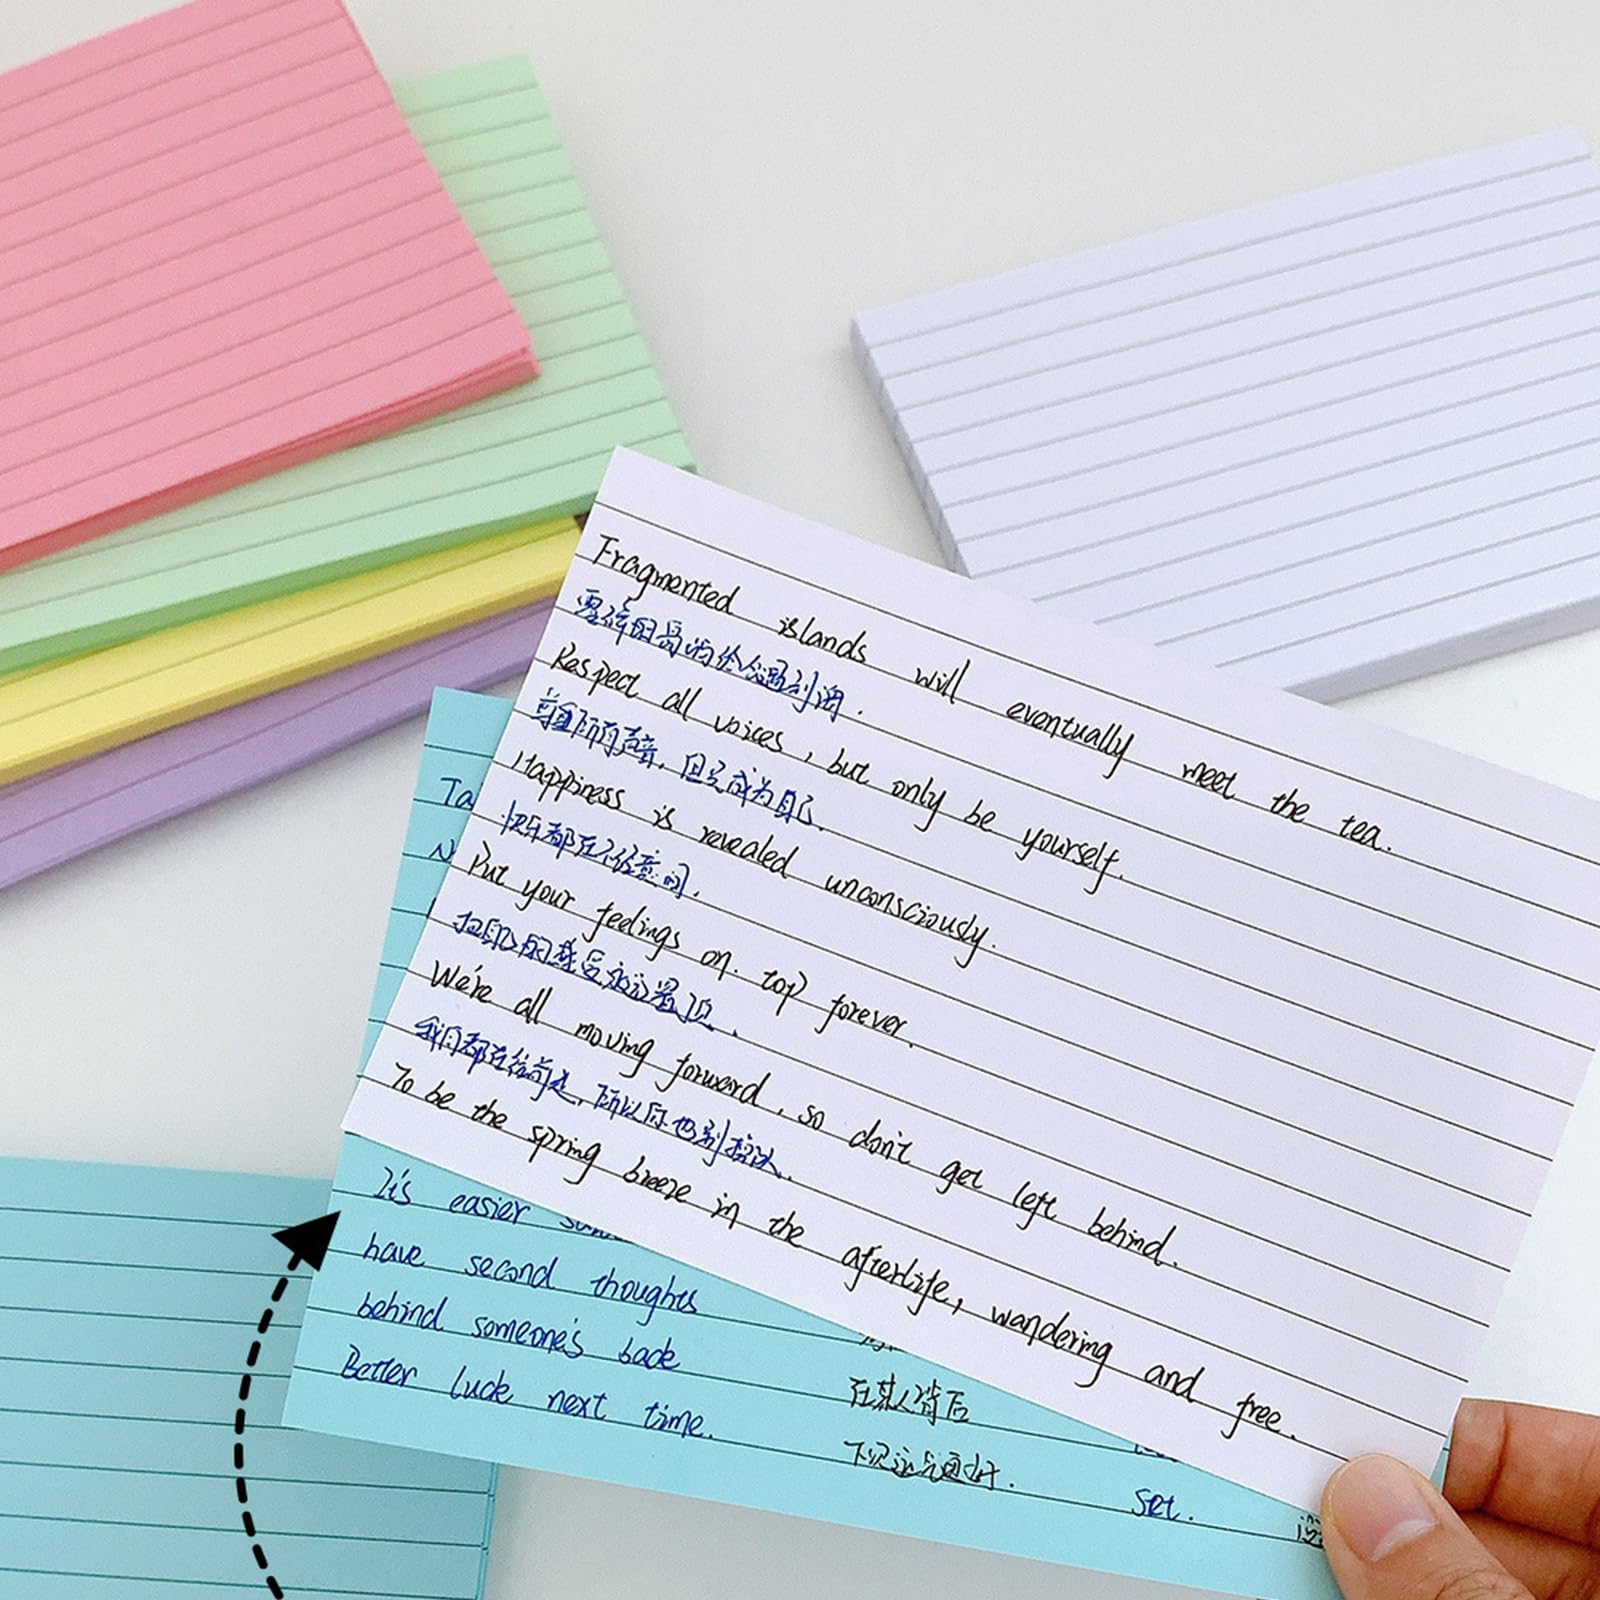 Fragmented islands will eventually meet the tea.
零碎的岛屿终会遇到海.
Respect all voices, but only be yourself.
尊重所有声音, 但只成为自己.
Happiness is revealed unconsciously.
快乐都在不经意间.
Put your feelings on top forever.
把你的感受永远置顶.
We're all moving forward, so don't get left behind.
我们都在往前走, 所以你也别掉队.
To be the spring breeze in the afterlife, wandering and free.
Ta
It's easier
have second thoughts
behind someone's back
Better luck next time.
在某人背后
下次运气通好.
set.